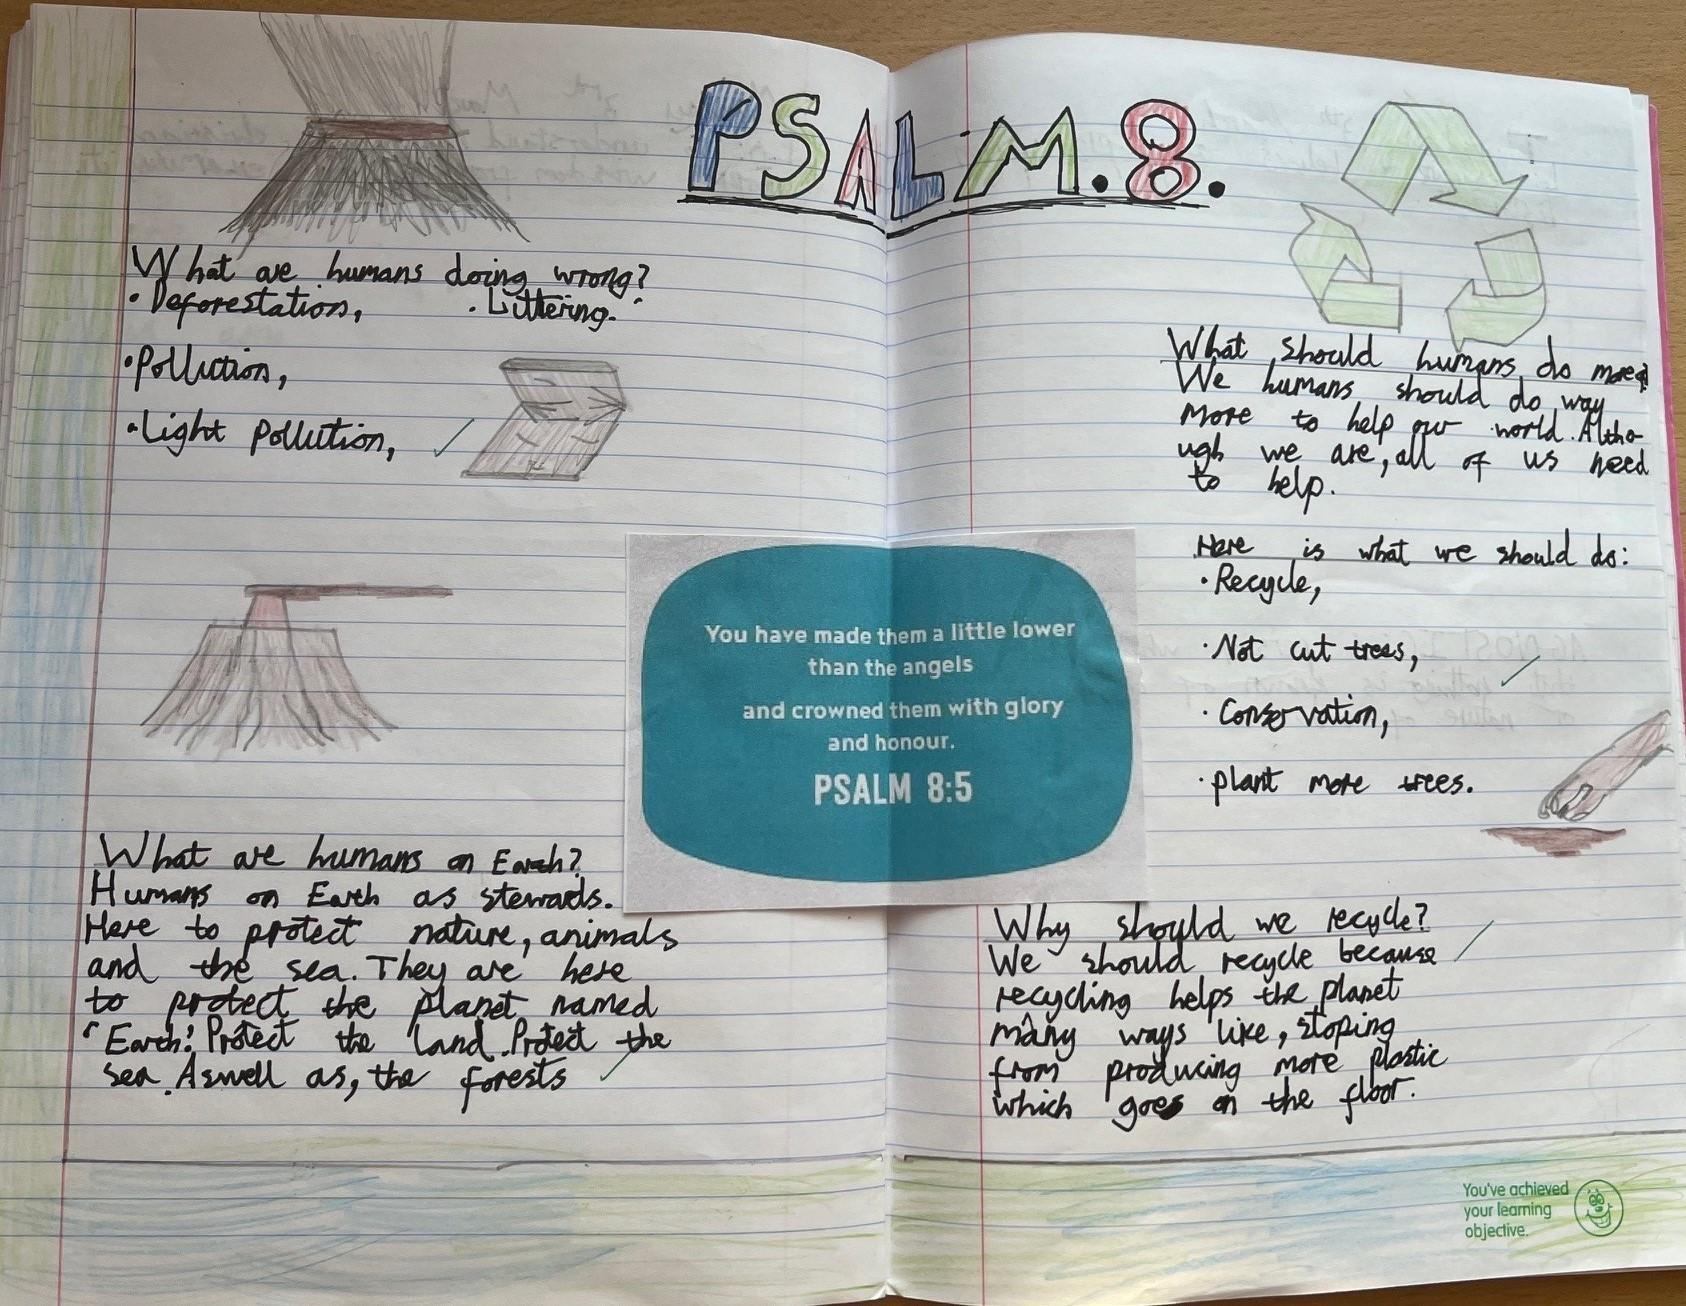 PSALM.8.
What are humans doing wrong?
• Deforestation, • Littering.
• Pollution,
• Light pollution,
What are humans on Earth?
Humans on Earth as stewards.
Here to protect nature, animals
and the sea. They are here
to protect the planet named
'Earth'. Protect the land. Protect the
sea. Aswell as, the forests
You have made them a little lower
than the angels
and crowned them with glory
and honour.
PSALM 8:5
What should humans do more?
We humans should do way
more to help our world. Altho-
ugh we are, all of us need
to help.
Here is what we should do:
• Recycle,
• Not cut trees,
• Conservation,
• plant more trees.
Why should we recycle?
We should recycle because
recycling helps the planet
many ways like, stoping
from producing more plastic
which goes on the floor.
You've achieved
your learning
objective.